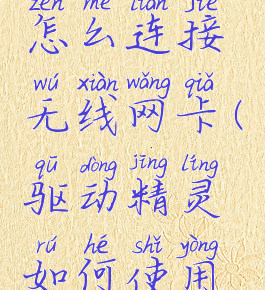 zěn me lián jiē
怎么连接
wú xiàn wǎng qiǎ
无线网卡(
qū dòng jīng líng
驱动精灵
rú hé shǐ yòng
如何使用